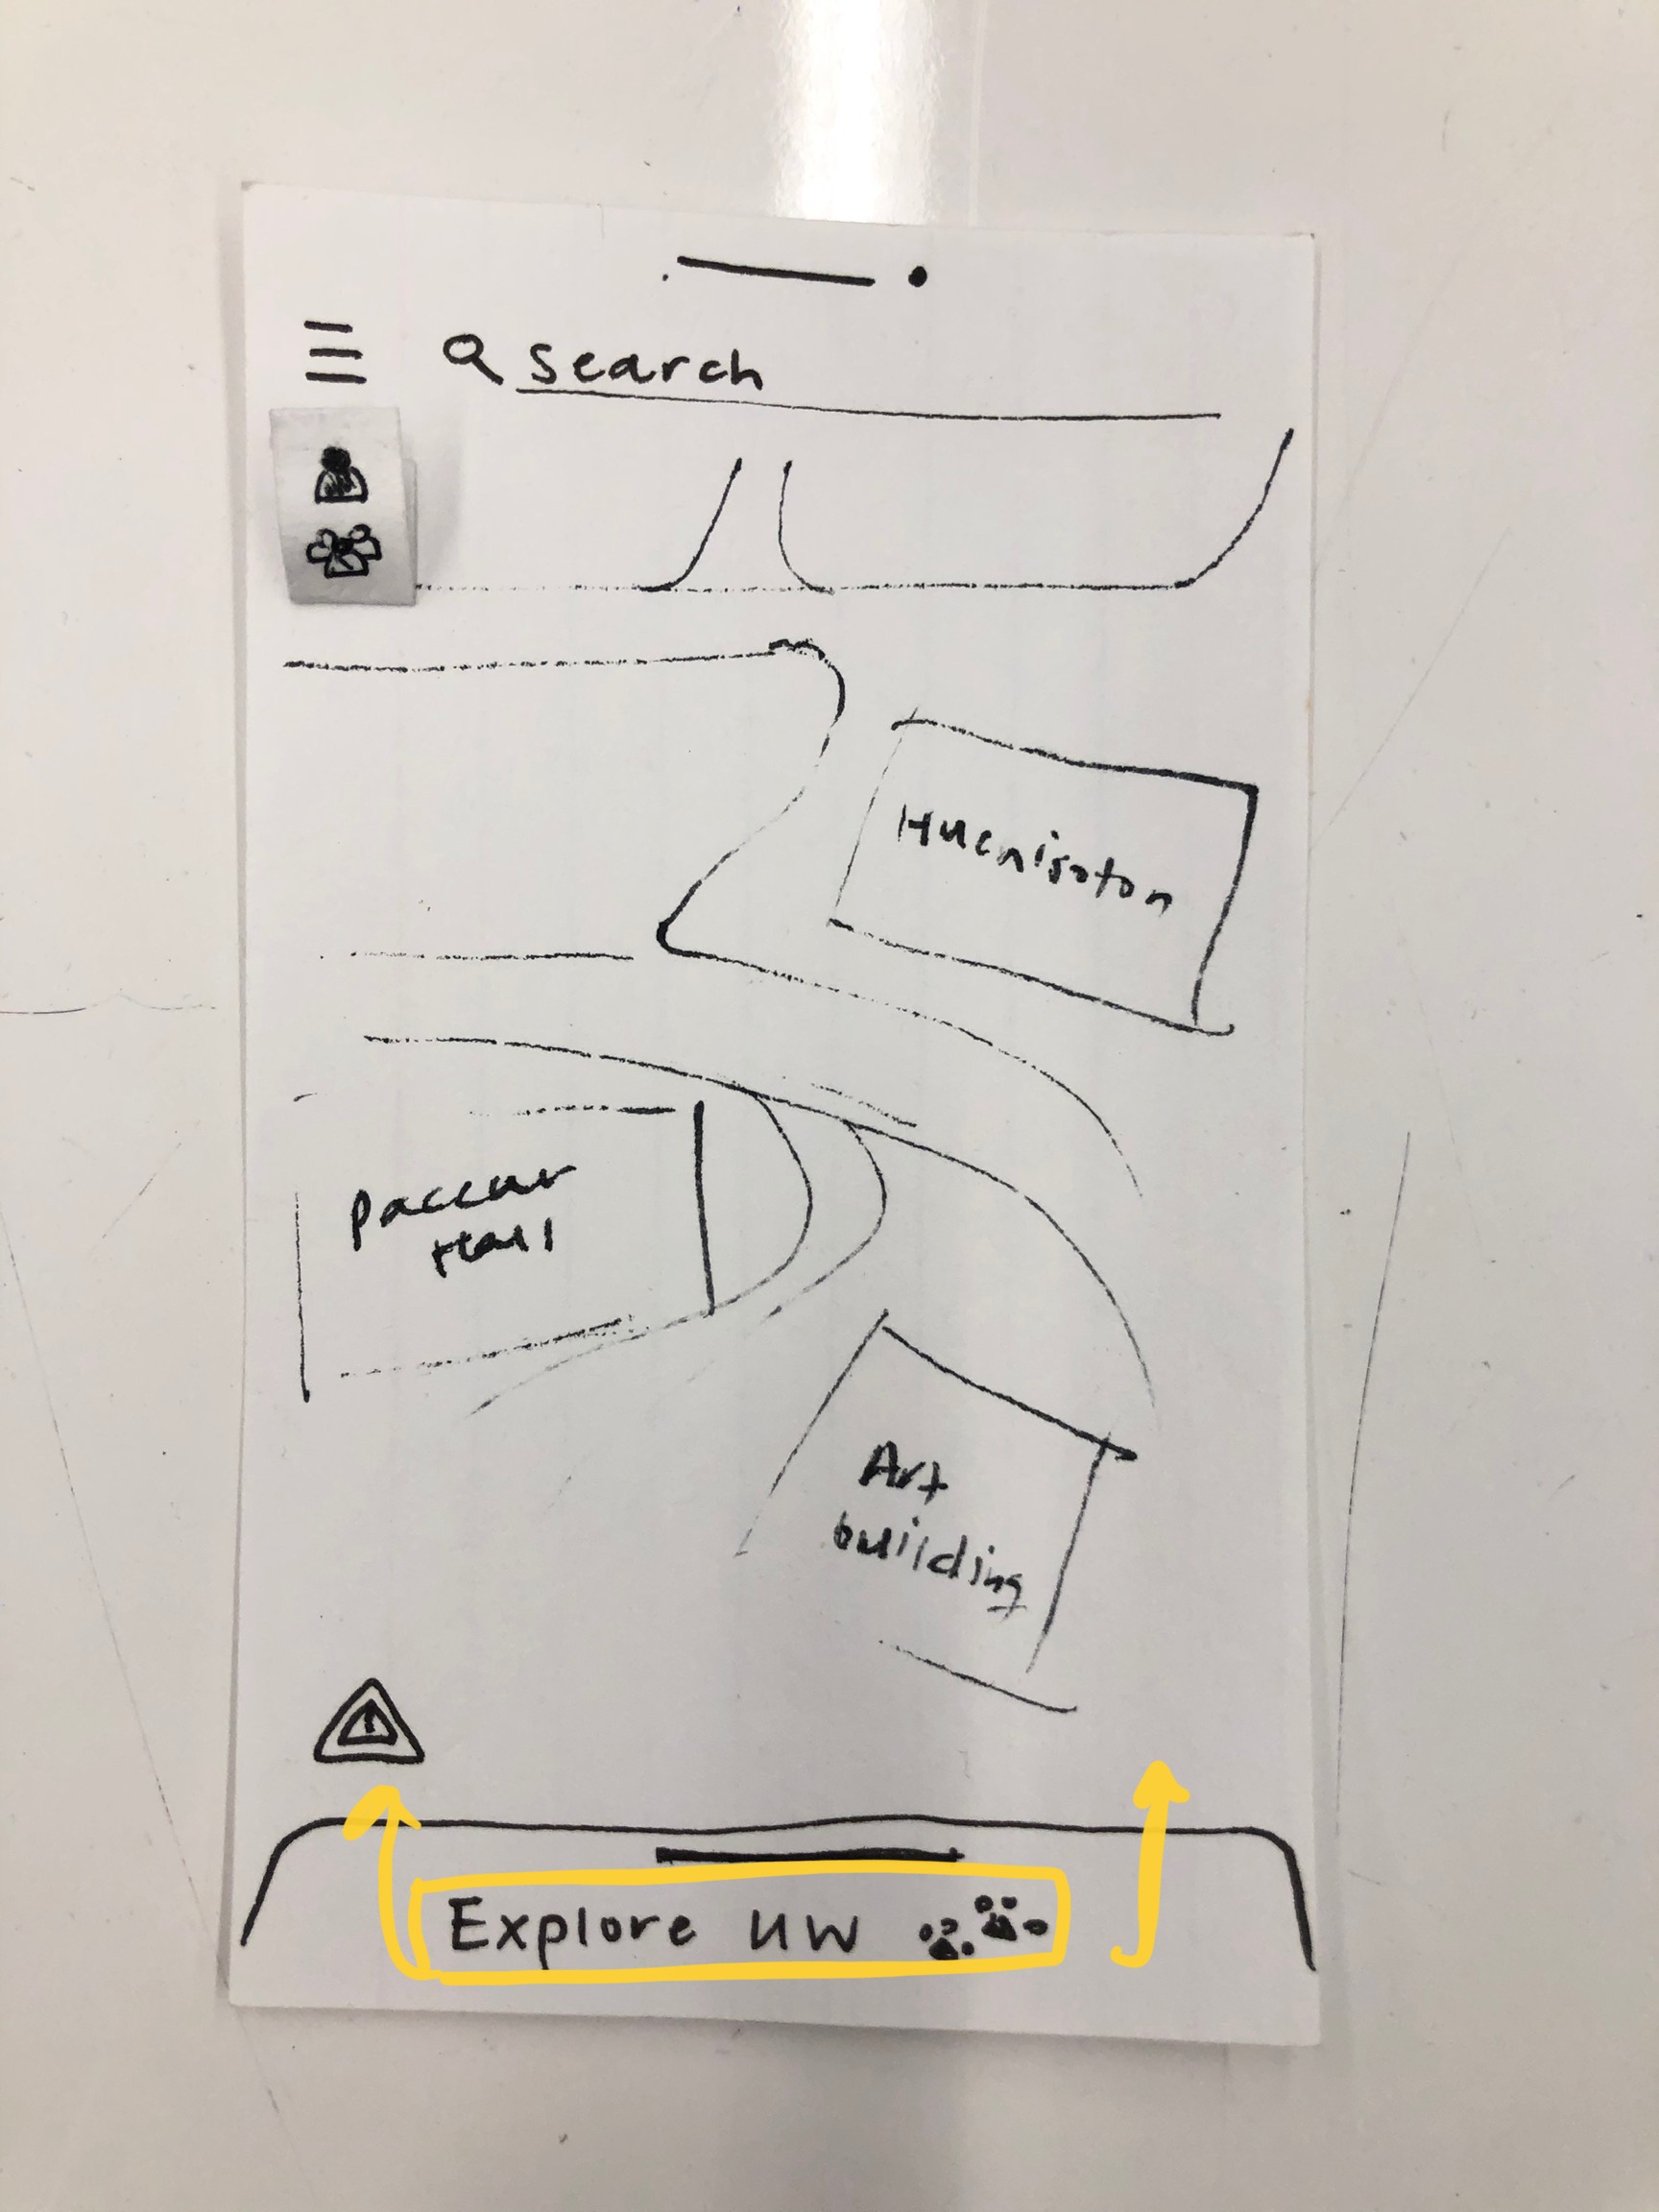 search
Hucnisoton
Paccar
Hall
Art
building
Explore UW